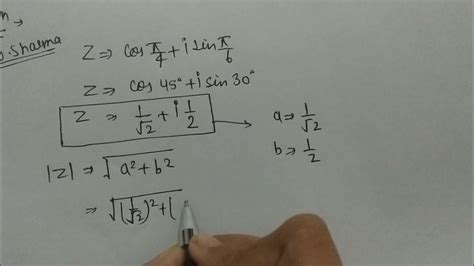 Sharma
Z ⇒ cos π/4 + i sin π/6
Z ⇒ cos 45° + i sin 30°
Z ⇒ 1/√2 + i 1/2
a ⇒ 1/√2
b ⇒ 1/2
|Z| ⇒ √(a² + b²)
⇒ √((1/√2)² + (